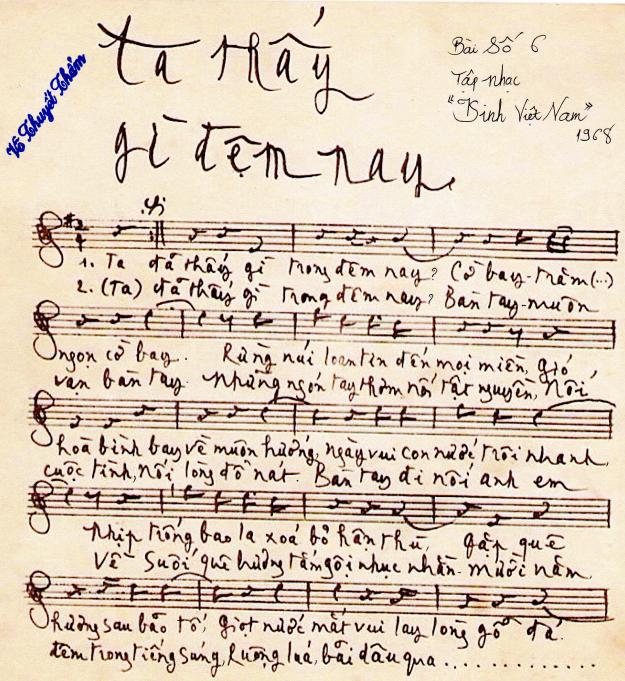 Võ Thuyết Thẩm
Ta thấy
gì đêm nay
Bài Số 6
Tập nhạc
"Kinh Việt Nam"
1968
2
4
1. Ta đã thấy gì trong đêm nay? Cờ bay trăm (..)
2. (Ta) đã thấy gì trong đêm nay? Bàn tay muôn
ngọn cờ bay. Rừng núi loan tin đến mọi miền, gió
vạn bàn tay. Những ngón tay thơm nối tật nguyền, nối
hoà bình bay về muôn hướng, ngày vui con nước trôi nhanh,
cuộc tình, nối lòng đổ nát. Bàn tay đi nối anh em
nhịp trống bao la xoá bỏ hận thù, gặp quê
Về suối quê hương tắm gội nhục nhằn. Mười năm,
hương sau bão tố, giọt nước mắt vui lay lòng gỗ đá.
đêm trong tiếng súng, Ruộng lúa, bãi dâu qua ..............